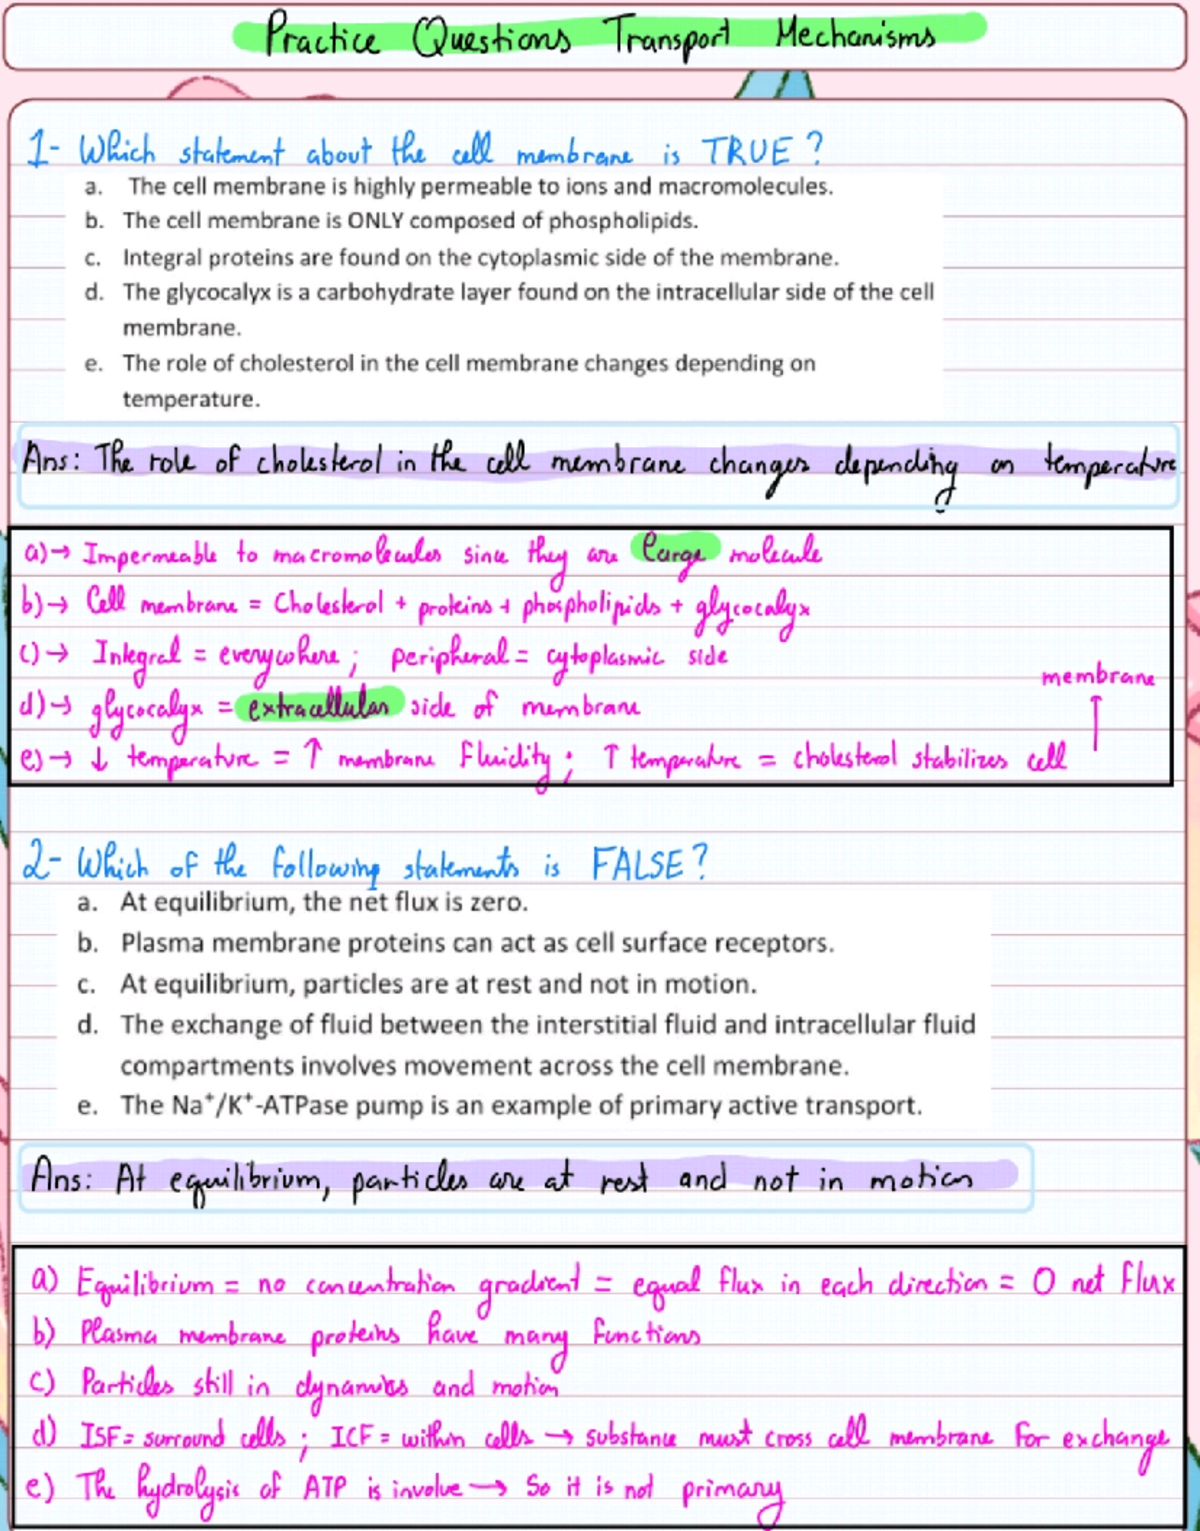 Practice Questions Transport Mechanisms
1- Which statement about the cell membrane is TRUE ?
a. The cell membrane is highly permeable to ions and macromolecules.
b. The cell membrane is ONLY composed of phospholipids.
c. Integral proteins are found on the cytoplasmic side of the membrane.
d. The glycocalyx is a carbohydrate layer found on the intracellular side of the cell
membrane.
e. The role of cholesterol in the cell membrane changes depending on
temperature.
Ans: The role of cholesterol in the cell membrane changes depending on temperature
a)→ Impermeable to macromolecules since they are large molecule
b)→ Cell membrane = Cholesterol + proteins + phospholipids + glycocalyx
c)→ Integral = everywhere; peripheral = cytoplasmic side
d)→ glycocalyx = extracellular side of membrane
e)→ ↓ temperature = ↑ membrane fluidity; ↑ temperature = cholesterol stabilizes cell ↑ membrane
2- Which of the following statements is FALSE ?
a. At equilibrium, the net flux is zero.
b. Plasma membrane proteins can act as cell surface receptors.
c. At equilibrium, particles are at rest and not in motion.
d. The exchange of fluid between the interstitial fluid and intracellular fluid
compartments involves movement across the cell membrane.
e. The Na⁺/K⁺-ATPase pump is an example of primary active transport.
Ans: At equilibrium, particles are at rest and not in motion
a) Equilibrium = no concentration gradient = equal flux in each direction = 0 net flux
b) Plasma membrane proteins have many functions
c) Particles still in dynamics and motion
d) ISF = surround cells ; ICF = within cells → substance must cross cell membrane for exchange
e) The hydrolysis of ATP is involve → So it is not primary